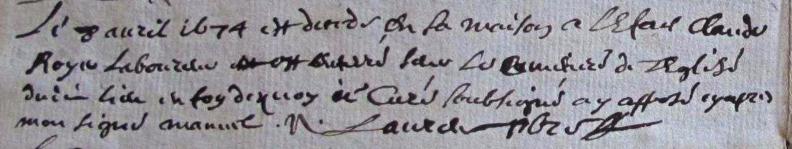 Le 8 avril 1674 est decede en sa maison a Claude
Royer Laboureur enterré dans le cimetiere de l'Eglise
dud. lieu en foy dequoy ie Curé soubsigné ay apposé cy apres
mon signe manuel. N. Laure pbre